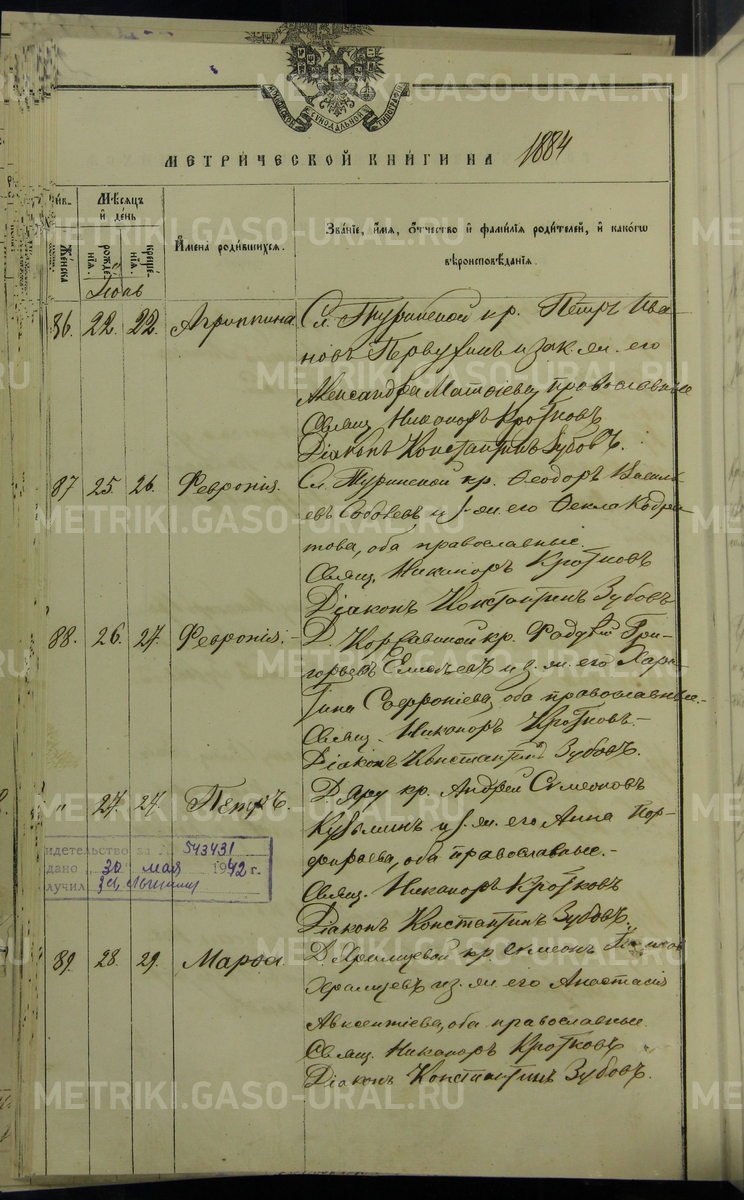 МЕТРИЧЕСКОЙ КНИГИ НА 1884
Мѣсяцъ и день
Женска
рожденія.
крещенія.
Имена родившихся.
Званіе, имя, отчество и фамилія родителей, и какого
вѣроисповѣданія.
Іюнь
86. 22. 22. Агриппина.
С. Туринской кр. Петръ Ива-
новъ Первухинъ и зак. ж. его
Александра Матѳіева, православные
Свящ. Никаноръ Кротковъ
Діаконъ Константинъ Зубовъ.
87 25. 26. Февронія.
С. Туринской кр. Ѳеодоръ Василь-
евъ и з. ж. его Ѳекла Кодра-
това, оба православные.
Свящ. Никаноръ Кротковъ
Діаконъ Константинъ Зубовъ
88. 26. 27. Февронія. -
Д. кр. Гри-
горьевъ и з. ж. его Хари-
тина Софроніева, оба православные. -
Свящ. Никаноръ Кротковъ. -
Діаконъ Константинъ Зубовъ.
" 27. 27. Петръ.
Д. Яру кр. Андрей Симеоновъ
Кузьминъ и з. ж. его Анна Пор-
фирьева, оба православные. -
Свящ. Никаноръ Кротковъ
Діаконъ Константинъ Зубовъ.
идетельство за № 543431
дано „30" мая 1942 г.
лучил
89. 28. 29. Марѳа.
Д. Храмцевой кр. Симеонъ
Храмцевъ и з. ж. его Анастасія
Авксентіева, оба православные.
Свящ. Никаноръ Кротковъ
Діаконъ Константинъ Зубовъ.
METRIKI.GASO-URAL.RU